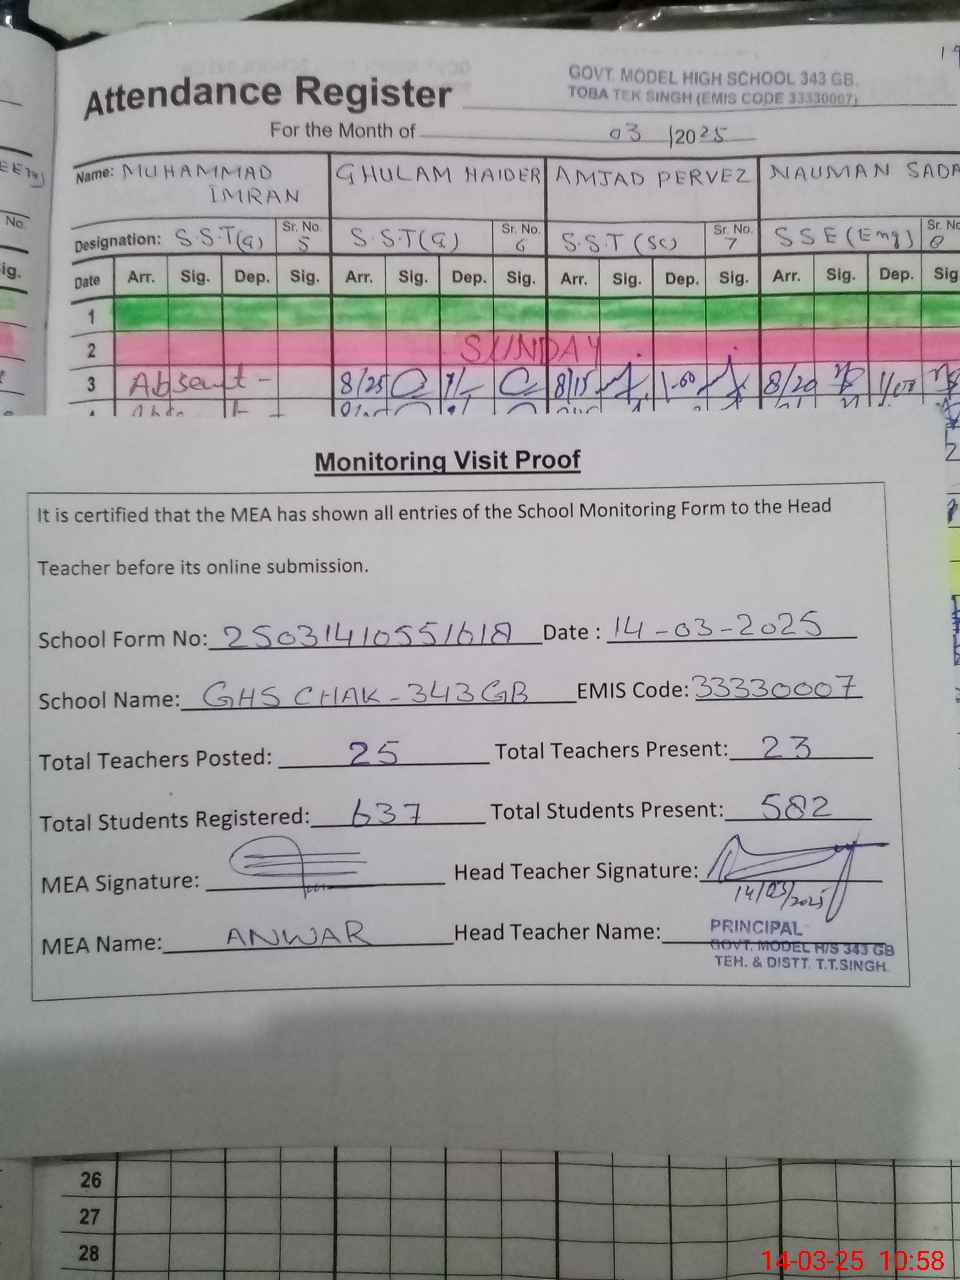 Attendance Register
GOVT. MODEL HIGH SCHOOL 343 GB.
TOBA TEK SINGH (EMIS CODE 33330007)
For the Month of 03/2025
Name: MUHAMMAD IMRAN GHULAM HAIDER AMJAD PERVEZ NAUMAN SADA
Designation: S.S.T(G) Sr. No. 5 S.S.T(G) Sr. No. 6 S.S.T (Sc) Sr. No. 7 SSE (Eng) Sr. No 8
Date Arr. Sig. Dep. Sig. Arr. Sig. Dep. Sig. Arr. Sig. Dep. Sig. Arr. Sig. Dep. Sig
1
2 SUNDAY
3 Absent - 8/25 8/15 1.00 8/20
Monitoring Visit Proof
It is certified that the MEA has shown all entries of the School Monitoring Form to the Head
Teacher before its online submission.
School Form No: 25031410551618 Date : 14-03-2025
School Name: GHS CHAK-343GB EMIS Code: 33330007
Total Teachers Posted: 25 Total Teachers Present: 23
Total Students Registered: 637 Total Students Present: 582
MEA Signature: Head Teacher Signature:
14/03/2025
MEA Name: ANWAR Head Teacher Name: PRINCIPAL
GOVT. MODEL H/S 343 GB
TEH. & DISTT. T.T.SINGH.
26
27
28
14-03-25 10:58